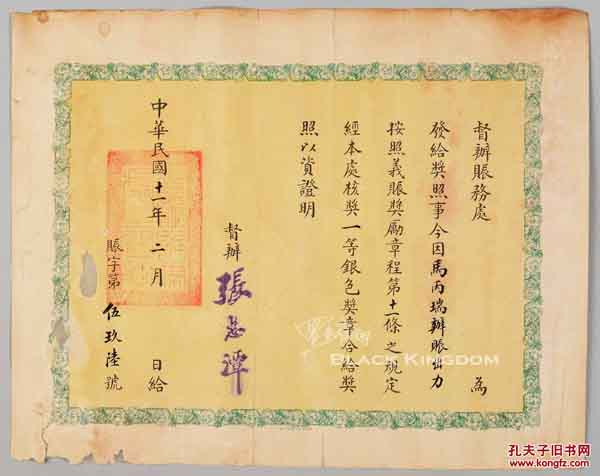 督辦賑務處 為
發給獎照事今因馬丙瑞辦賑出力
按照義賑獎勵章程第十一條之規定
經本處核獎一等銀色獎章合給獎
照以資證明
督辦 張志潭
中華民國十一年二月 日給
賑字第伍玖陸號
BLACK KINGDOM
孔夫子旧书网
www.kongfz.com